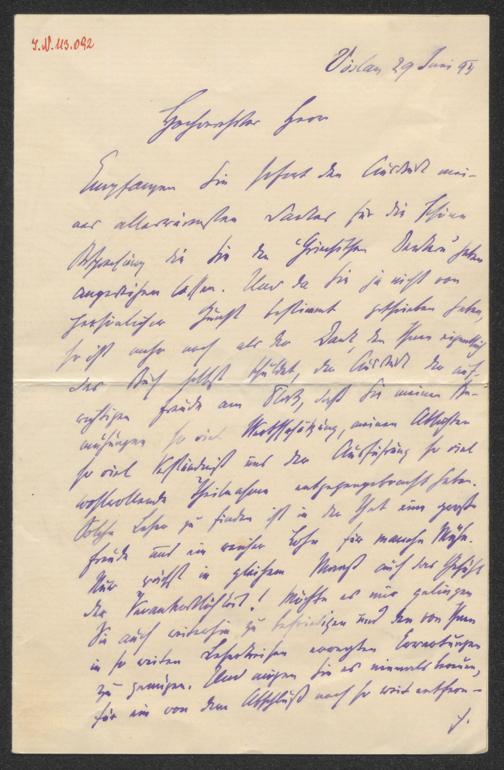 I.N. 113.092
Vöslau, 29 Juni 93
Hochverehrter Herr
Empfangen Sie sofort den Ausdruck mei-
nes allerwärmsten Dankes für die schöne
Besprechung die Sie den "Griechischen Denkern" haben
angedeihen lassen. Und da Sie ja nicht von
persönlicher Gunst bestimmt geschrieben haben,
so ist mehr noch als der Dank, den Ihnen eigentlich
das Buch selbst schuldet, der Ausdruck der auf-
richtigen Freude am Platz, daß Sie meinen Be-
mühungen so viel Wertschätzung, meinen Absichten
so viel Verständnis und der Ausführung so viel
wohlwollende Theilnahme entgegengebracht haben.
Solche Leser zu finden ist in der That eine große
Freude und ein reicher Lohn für manche Mühe.
Nur wächst in gleichem Maaß auch das Gefühl
der Verantwortlichkeit! Möchte es mir gelingen
Sie auch weiterhin zu befriedigen und den von Ihnen
in so weiten Leserkreisen erregten Erwartungen
zu genügen. Und mögen Sie es niemals bereuen,
für ein von dem Abschluß noch so weit entfern-